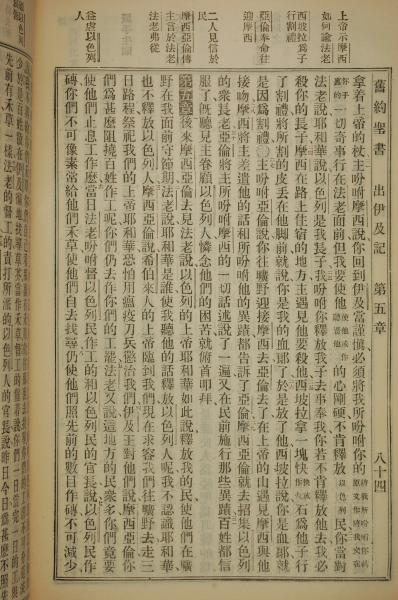 舊約聖書 出伊及記 第五章 八十四
上帝示摩西
如何諭法老
西坡拉爲子
行割禮
亞倫奉命往
迎摩西
二人見信於
民
摩西亞倫傳
主言於法老
法老弗從
益虐以色列
拿着上帝的杖主吩咐摩西說你回到伊及當謹愼必須將我所吩咐你的將我所吩咐你的原文作將我交在
你手裏的一切奇事行在法老面前但我要使他使他或作聽憑他的心剛硬不肯釋放以色列民你當對
法老說耶和華說以色列是我長子我吩咐你釋放我子去事奉我你若不肯釋放他去我必
殺你的長子摩西在路上住宿的地方主遇見他要殺他西坡拉拿一塊快石爲他子行
了割禮將所割的皮丟在他脚前就說你是我的血郞了於是放了他西坡拉說你是血郞就
是因爲割禮主吩咐亞倫說你往曠野迎接摩西去亞倫去了在上帝的山遇見摩西與他
接吻摩西將主差遣他的話和所吩咐他的異蹟都告訴了亞倫摩西亞倫就去招集以色列
的衆長老亞倫將主所吩咐摩西的一切話述說了一遍又在民前施行那些異蹟百姓都信
服了旣聽見主眷顧以色列人憐念他們的困苦就俯首叩拜
第五章後來摩西亞倫去見法老說以色列的上帝耶和華如此說釋放我的民使他們在曠
野在我面前守節期法老說耶和華是誰使我聽他的話釋放以色列人呢我不認識耶和華
也不釋放以色列人摩西亞倫說希伯來人的上帝臨到我們現在求容我們往曠野去走三
日路程祭祀我們的上帝耶和華恐怕用瘟疫刀兵懲治我們伊及王對他們說摩西亞倫你
們爲甚麼阻撓百姓作工呢你們仍去作你們的工罷法老又說這地方的民衆多你們竟要
使他們止息工作麼當日法老吩咐督以色列民作工的和以色列民的官長說以色列民作
磚你們不可像素常給他們禾草使他們自去找尋仍使他們照先前的數目作磚不可減少
先前有禾草一樣法老的督工的責打所派的以色列人的官長說昨日今日爲甚麼不照先